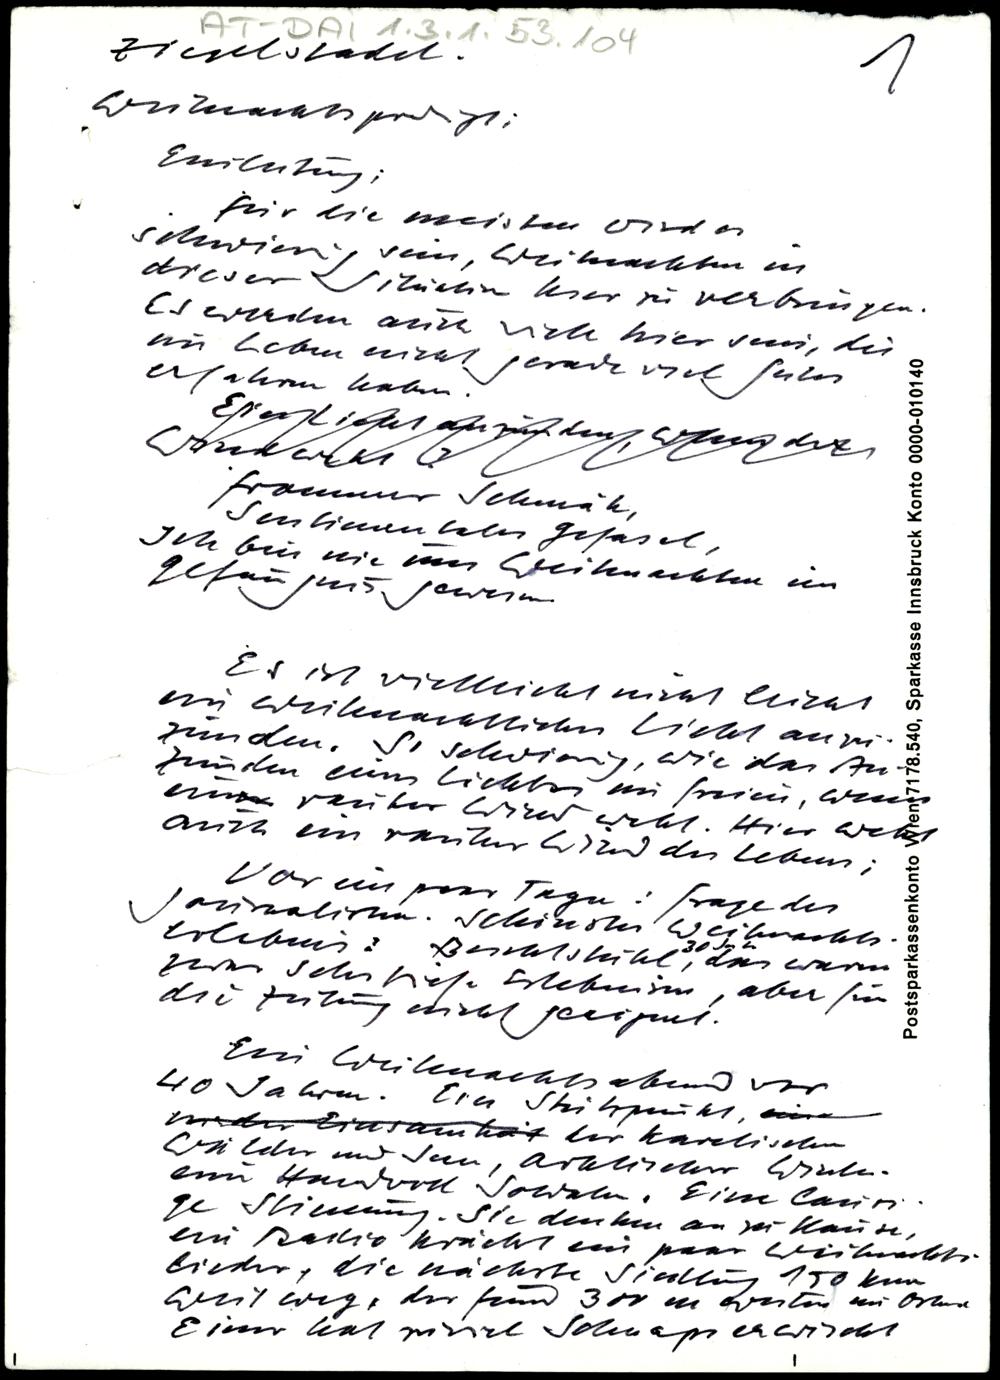 AT-DAI 1.3.1.53.104
Ziegelstadel.
1
Weihnachtspredigt;
Einleitung;
Für die meisten wird es
schwierig sein, Weihnachten in
dieser Situation hier zu verbringen.
Es werden auch viele hier sein, die
im Leben nicht gerade viel Gutes
erfahren haben.
Ein Licht anzünden, wenn der
Wind weht?
frommer Schmäh,
Sentimentales Gefasel,
Ich bin nie um Weihnachten im
Gefängnis gewesen
Es ist vielleicht nicht leicht
ein weihnachtliches Licht anzu-
zünden. So schwierig, wie das An-
zünden eines Lichtes im freien, wenn
ein rauher Wind weht. Hier weht
auch ein rauher Wind des Lebens;
Vor ein paar Tagen: Frage des
Journalisten. Schönstes Weihnachts-
Erlebnis? Beichtstuhl, 30 Jahre das waren
zwar sehr tiefe Erlebnisse, aber für
die Zeitung nicht geeignet.
Ein Weihnachtsabend vor
40 Jahren. Ein Stützpunkt, eine
in der Einsamkeit der karelischen
Wälder und Seen, arktischer Winter.
eine Handvoll Soldaten. Eine launi-
ge Stimmung. Sie denken an zu Hause,
ein Radio krächzt ein paar Weihnachts-
lieder, die nächste Siedlung 150 km
weit weg, der Feind 300 m weiter im Osten
Einer hat zuviel Schnaps erwischt
Postsparkassenkonto Wien 7178.540, Sparkasse Innsbruck Konto 0000-010140